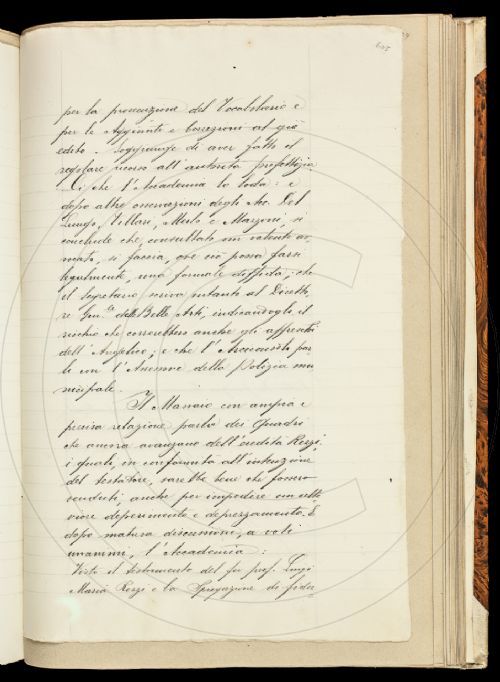 per la prosecuzione del Vocabolario e
per le Aggiunte e Correzioni al già
edito. Soggiunge di aver fatto il
regolare ricorso all'autorità prefettizia.
Di che l'Accademia lo loda: e
dopo altre osservazioni degli Acc. Del
Lungo, Villari, Merlo e Marzoni, si
conclude che, consultato un valente av-
vocato, si faccia, ove ciò possa farsi
legalmente, una formale diffida; che
il Segretario scriva intanto al Diretto-
re Gen.le delle Belle Arti, indicandogli il
rischio che correrebbero anche gli affreschi
dell'Angelico; e che l'Arciconsolo par-
li con l'Assessore della Polizia mu-
nicipale.
Il Massaio con ampia e
precisa relazione parla dei Quadri
che ancora avanzano dell'eredità Rezzi,
i quali, in conformità all'intenzione
del testatore, sarebbe bene che fossero
venduti anche per impedire un ulte-
riore deperimento e deprezzamento. E
dopo matura discussione, a voti
unanimi, l'Accademia:
Visto il testamento del fu prof. Luigi
Maria Rezzi e la Spiegazione di fidu-